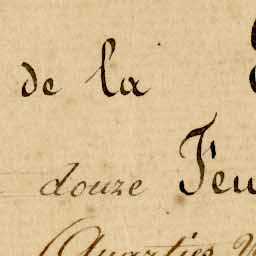 de la
douze Feu
Quartier